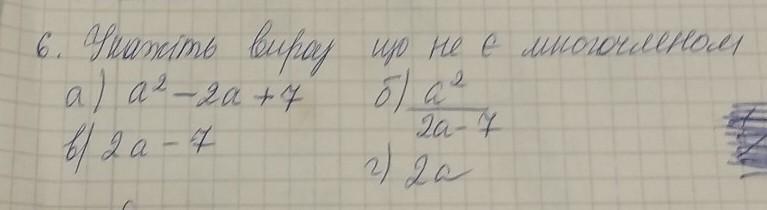 6. Укажіть вираз що не є многочленом
а) a² - 2a + 7 б) a²/(2a - 7)
в) 2a - 7
г) 2a